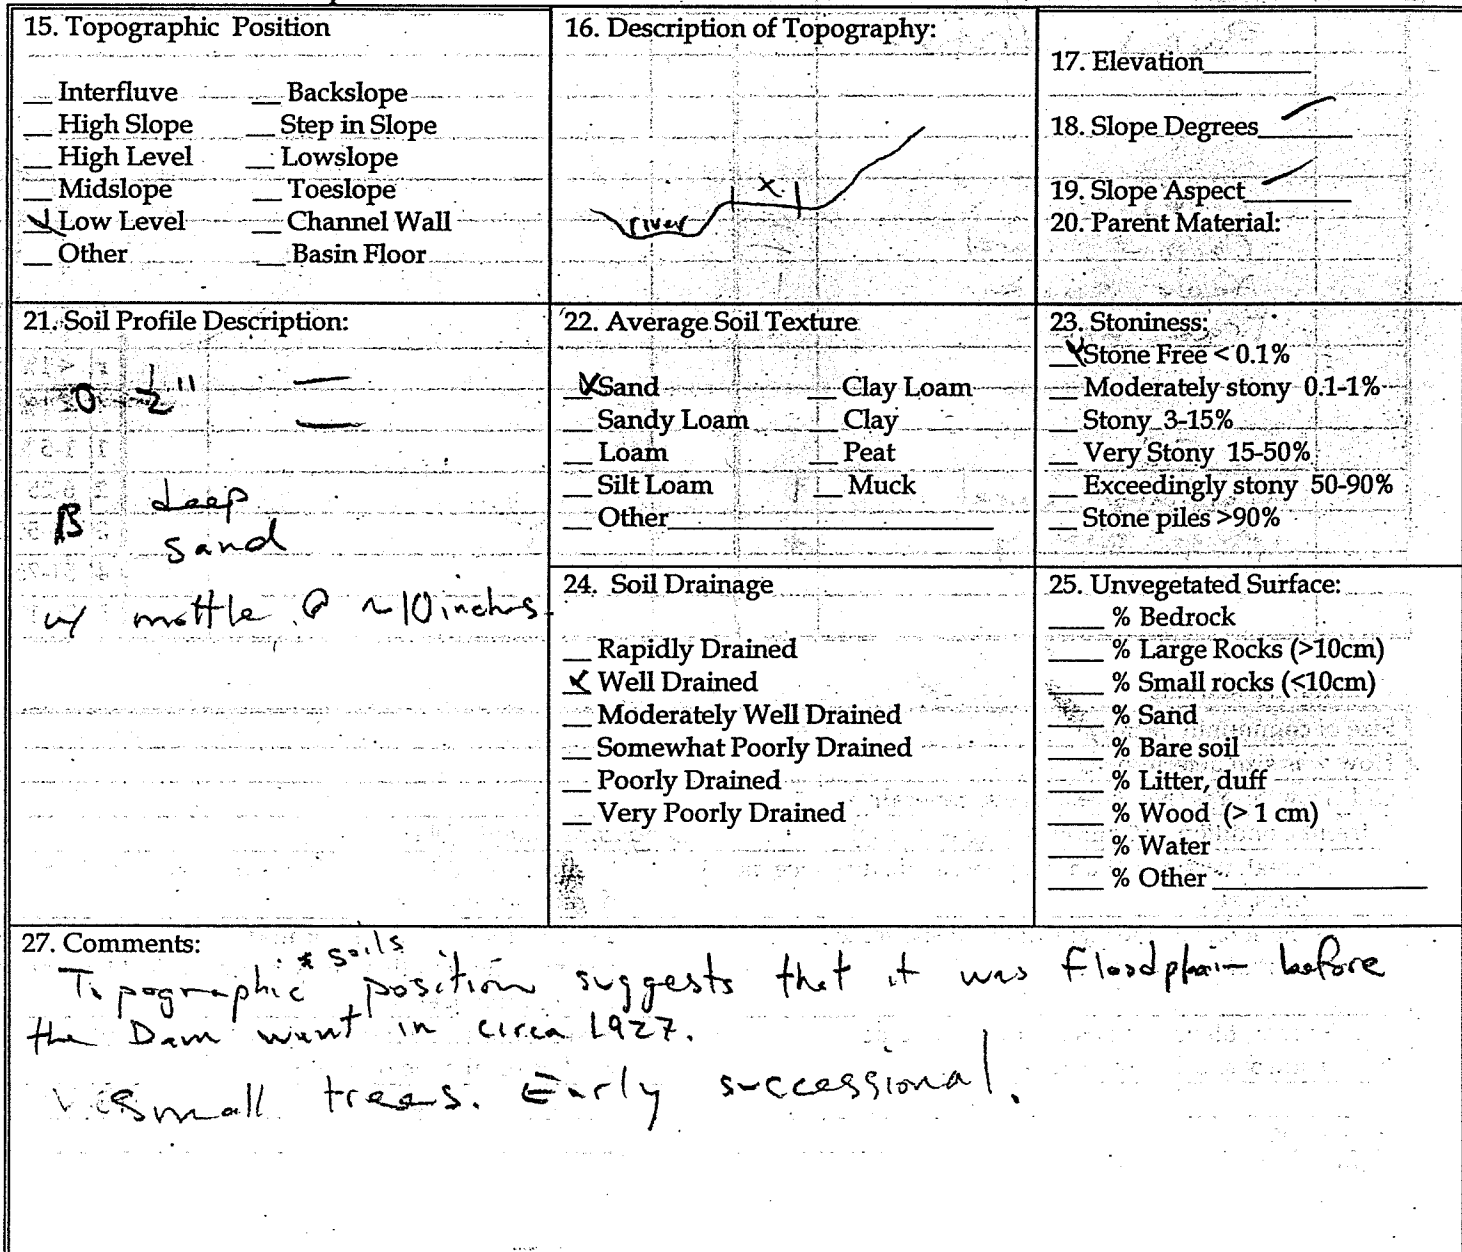 15. Topographic Position
__ Interfluve __ Backslope
__ High Slope __ Step in Slope
__ High Level __ Lowslope
__ Midslope __ Toeslope
✓ Low Level __ Channel Wall
__ Other __ Basin Floor
16. Description of Topography:
x
river
17. Elevation________
18. Slope Degrees________
19. Slope Aspect________
20. Parent Material:
21. Soil Profile Description:
O 1/2"
B deep
sand
w/ mottle @ ~10 inches
22. Average Soil Texture
✓ Sand __ Clay Loam
__ Sandy Loam __ Clay
__ Loam __ Peat
__ Silt Loam __ Muck
__ Other________
23. Stoniness:
✓ Stone Free < 0.1%
__ Moderately stony 0.1-1%
__ Stony 3-15%
__ Very Stony 15-50%
__ Exceedingly stony 50-90%
__ Stone piles >90%
24. Soil Drainage
__ Rapidly Drained
X Well Drained
__ Moderately Well Drained
__ Somewhat Poorly Drained
__ Poorly Drained
__ Very Poorly Drained
25. Unvegetated Surface:
____ % Bedrock
____ % Large Rocks (>10cm)
____ % Small rocks (<10cm)
____ % Sand
____ % Bare soil
____ % Litter, duff
____ % Wood (> 1 cm)
____ % Water
____ % Other ________
27. Comments:
Topographic * soils position suggests that it was floodplain before
the Dam went in circa 1927.
Small trees. Early successional.